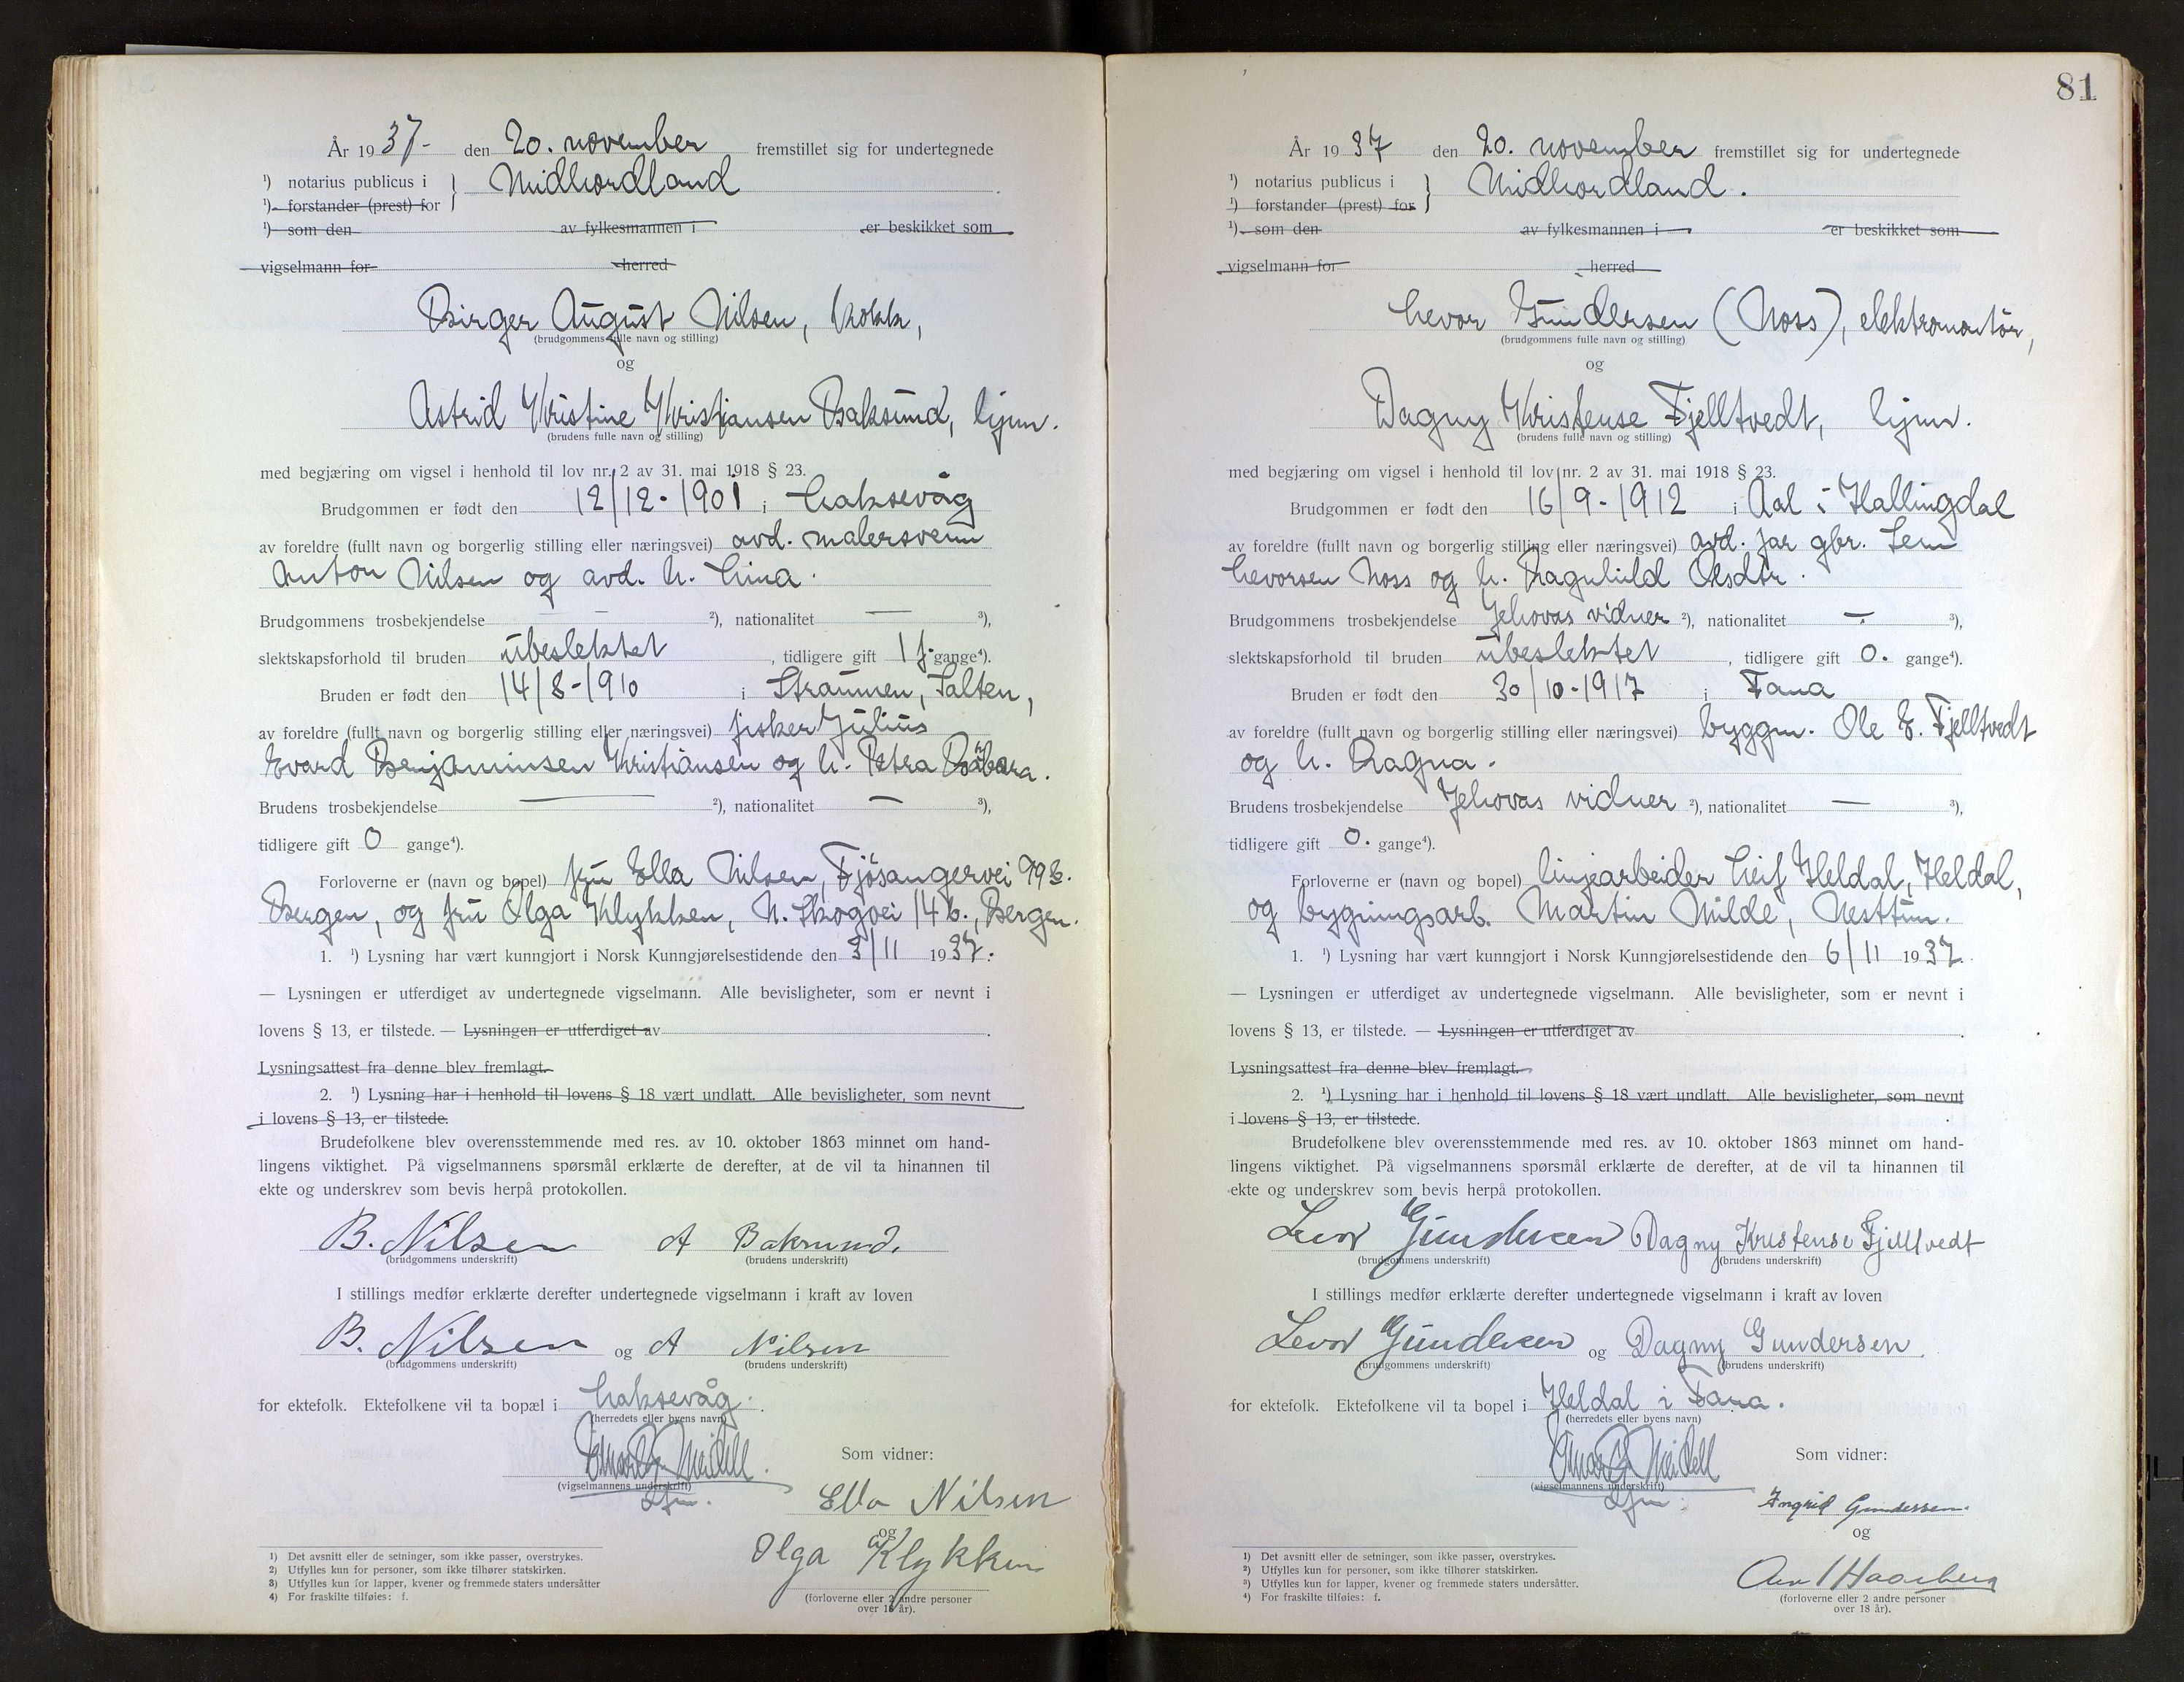 År 1937- den 20. november fremstillet sig for undertegnede
¹) notarius publicus i } Midhordland
¹) forstander (prest) for
¹) som den av fylkesmannen i er beskikket som
vigselmann for herred
Birger August Nilsen, kokk,
(brudgommens fulle navn og stilling)
og
Astrid Kristine Kristiansen Baksund, hjm.
(brudens fulle navn og stilling)
med begjæring om vigsel i henhold til lov nr. 2 av 31. mai 1918 § 23.
Brudgommen er født den 12/12-1901 i Laksevåg
av foreldre (fullt navn og borgerlig stilling eller næringsvei) avd. malersvenn
Anton Nilsen og avd. h. Lina.
Brudgommens trosbekjendelse — ²), nationalitet — ³),
slektskapsforhold til bruden ubeslektet, tidligere gift 1 f. gange⁴).
Bruden er født den 14/8-1910 i Straumen, Salten,
av foreldre (fullt navn og borgerlig stilling eller næringsvei) fisker Julius
Evard Benjaminsen Kristiansen og h. Petra Barbara.
Brudens trosbekjendelse — ²), nationalitet — ³),
tidligere gift 0 gange⁴).
Forloverne er (navn og bopel) fru Ella Nilsen, Fjösangervei 79 b.
Bergen, og fru Olga Klykken, N. Skogvei 14 b., Bergen.
1. ¹) Lysning har vært kunngjort i Norsk Kunngjørelsestidende den 3/11 1937.
— Lysningen er utferdiget av undertegnede vigselmann. Alle bevisligheter, som er nevnt i
lovens § 13, er tilstede. — Lysningen er utferdiget av
Lysningsattest fra denne blev fremlagt.
2. ¹) Lysning har i henhold til lovens § 18 vært undlatt. Alle bevisligheter, som nevnt
i lovens § 13, er tilstede.
Brudefolkene blev overensstemmende med res. av 10. oktober 1863 minnet om hand-
lingens viktighet. På vigselmannens spørsmål erklærte de derefter, at de vil ta hinannen til
ekte og underskrev som bevis herpå protokollen.
B. Nilsen A Baksund.
(brudgommens underskrift) (brudens underskrift)
I stillings medfør erklærte derefter undertegnede vigselmann i kraft av loven
B. Nilsen og A Nilsen
(brudgommens underskrift) (brudens underskrift)
for ektefolk. Ektefolkene vil ta bopæl i Laksevåg.
(herredets eller byens navn)
Meidell Som vidner:
(vigselmannens underskrift)
Ella Nilsen
og
Olga Klykken
(forloverne eller 2 andre personer
over 18 år).
1) Det avsnitt eller de setninger, som ikke passer, overstrykes.
2) Utfylles kun for personer, som ikke tilhører statskirken.
3) Utfylles kun for lapper, kvener og fremmede staters undersåtter
4) For fraskilte tilføies: f.
81
År 1937 den 20. november fremstillet sig for undertegnede
¹) notarius publicus i } Midhordland.
¹) forstander (prest) for
¹) som den av fylkesmannen i er beskikket som
vigselmann for herred
Levor Gundersen (Noss), elektromontör,
(brudgommens fulle navn og stilling)
og
Dagny Kristense Fjelltvedt, hjm.
(brudens fulle navn og stilling)
med begjæring om vigsel i henhold til lov nr. 2 av 31. mai 1918 § 23.
Brudgommen er født den 16/9-1912 i Aal i Hallingdal
av foreldre (fullt navn og borgerlig stilling eller næringsvei) avd. gbr.
Levorsen Noss og h. Ragnhild Olsdtr.
Brudgommens trosbekjendelse Jehovas vidner ²), nationalitet — ³),
slektskapsforhold til bruden ubeslektet, tidligere gift 0. gange⁴).
Bruden er født den 30/10-1917 i Fana
av foreldre (fullt navn og borgerlig stilling eller næringsvei) byggm. Ole E. Fjelltvedt
og h. Ragna.
Brudens trosbekjendelse Jehovas vidner ²), nationalitet — ³),
tidligere gift 0. gange⁴).
Forloverne er (navn og bopel) linjearbeider Leif Heldal, Heldal,
og bygningsarb. Martin Milde, Nesttun.
1. ¹) Lysning har vært kunngjort i Norsk Kunngjørelsestidende den 6/11 1937.
— Lysningen er utferdiget av undertegnede vigselmann. Alle bevisligheter, som er nevnt i
lovens § 13, er tilstede. — Lysningen er utferdiget av
Lysningsattest fra denne blev fremlagt.
2. ¹) Lysning har i henhold til lovens § 18 vært undlatt. Alle bevisligheter, som nevnt
i lovens § 13, er tilstede.
Brudefolkene blev overensstemmende med res. av 10. oktober 1863 minnet om hand-
lingens viktighet. På vigselmannens spørsmål erklærte de derefter, at de vil ta hinannen til
ekte og underskrev som bevis herpå protokollen.
Levor Gundersen Dagny Kristense Fjelltvedt
(brudgommens underskrift) (brudens underskrift)
I stillings medfør erklærte derefter undertegnede vigselmann i kraft av loven
Levor Gundersen og Dagny Gundersen
(brudgommens underskrift) (brudens underskrift)
for ektefolk. Ektefolkene vil ta bopel i Heldal i Fana.
(herredets eller byens navn)
Meidell Som vidner:
(vigselmannens underskrift)
Ingrid Gundersen.
og
Haarberg
(forloverne eller 2 andre personer
over 18 år).
1) Det avsnitt eller de setninger, som ikke passer, overstrykes.
2) Utfylles kun for personer, som ikke tilhører statskirken.
3) Utfylles kun for lapper, kvener og fremmede staters undersåtter.
4) For fraskilte tilføies: f.